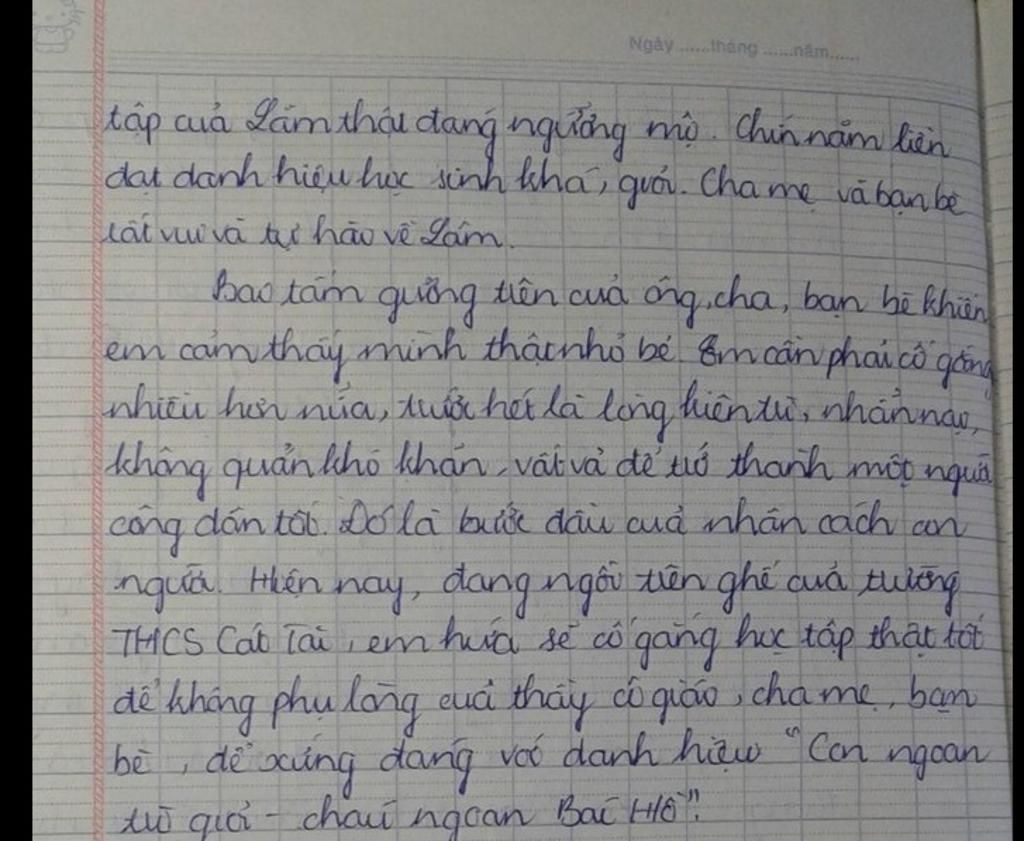 Ngày ......tháng ......năm......
tập của Lâm thật đáng ngưỡng mộ. Chín năm liền
đạt danh hiệu học sinh khá, giỏi. Cha mẹ và bạn bè
rất vui và tự hào về Lâm.
Bao tấm gương trên của ông, cha, bạn bè khiến
em cảm thấy mình thật nhỏ bé. Em cần phải cố gắng
nhiều hơn nữa, trước hết là lòng kiên trì, nhẫn nại,
không quản khó khăn, vất vả để trở thành một người
công dân tốt. Đó là bước đầu của nhân cách con
người. Hiện nay, đang ngồi trên ghế của trường
THCS Cát Tài, em hứa sẽ cố gắng học tập thật tốt
để không phụ lòng của thầy cô giáo, cha mẹ, bạn
bè, để xứng đáng với danh hiệu "Con ngoan
trò giỏi - cháu ngoan Bác Hồ".